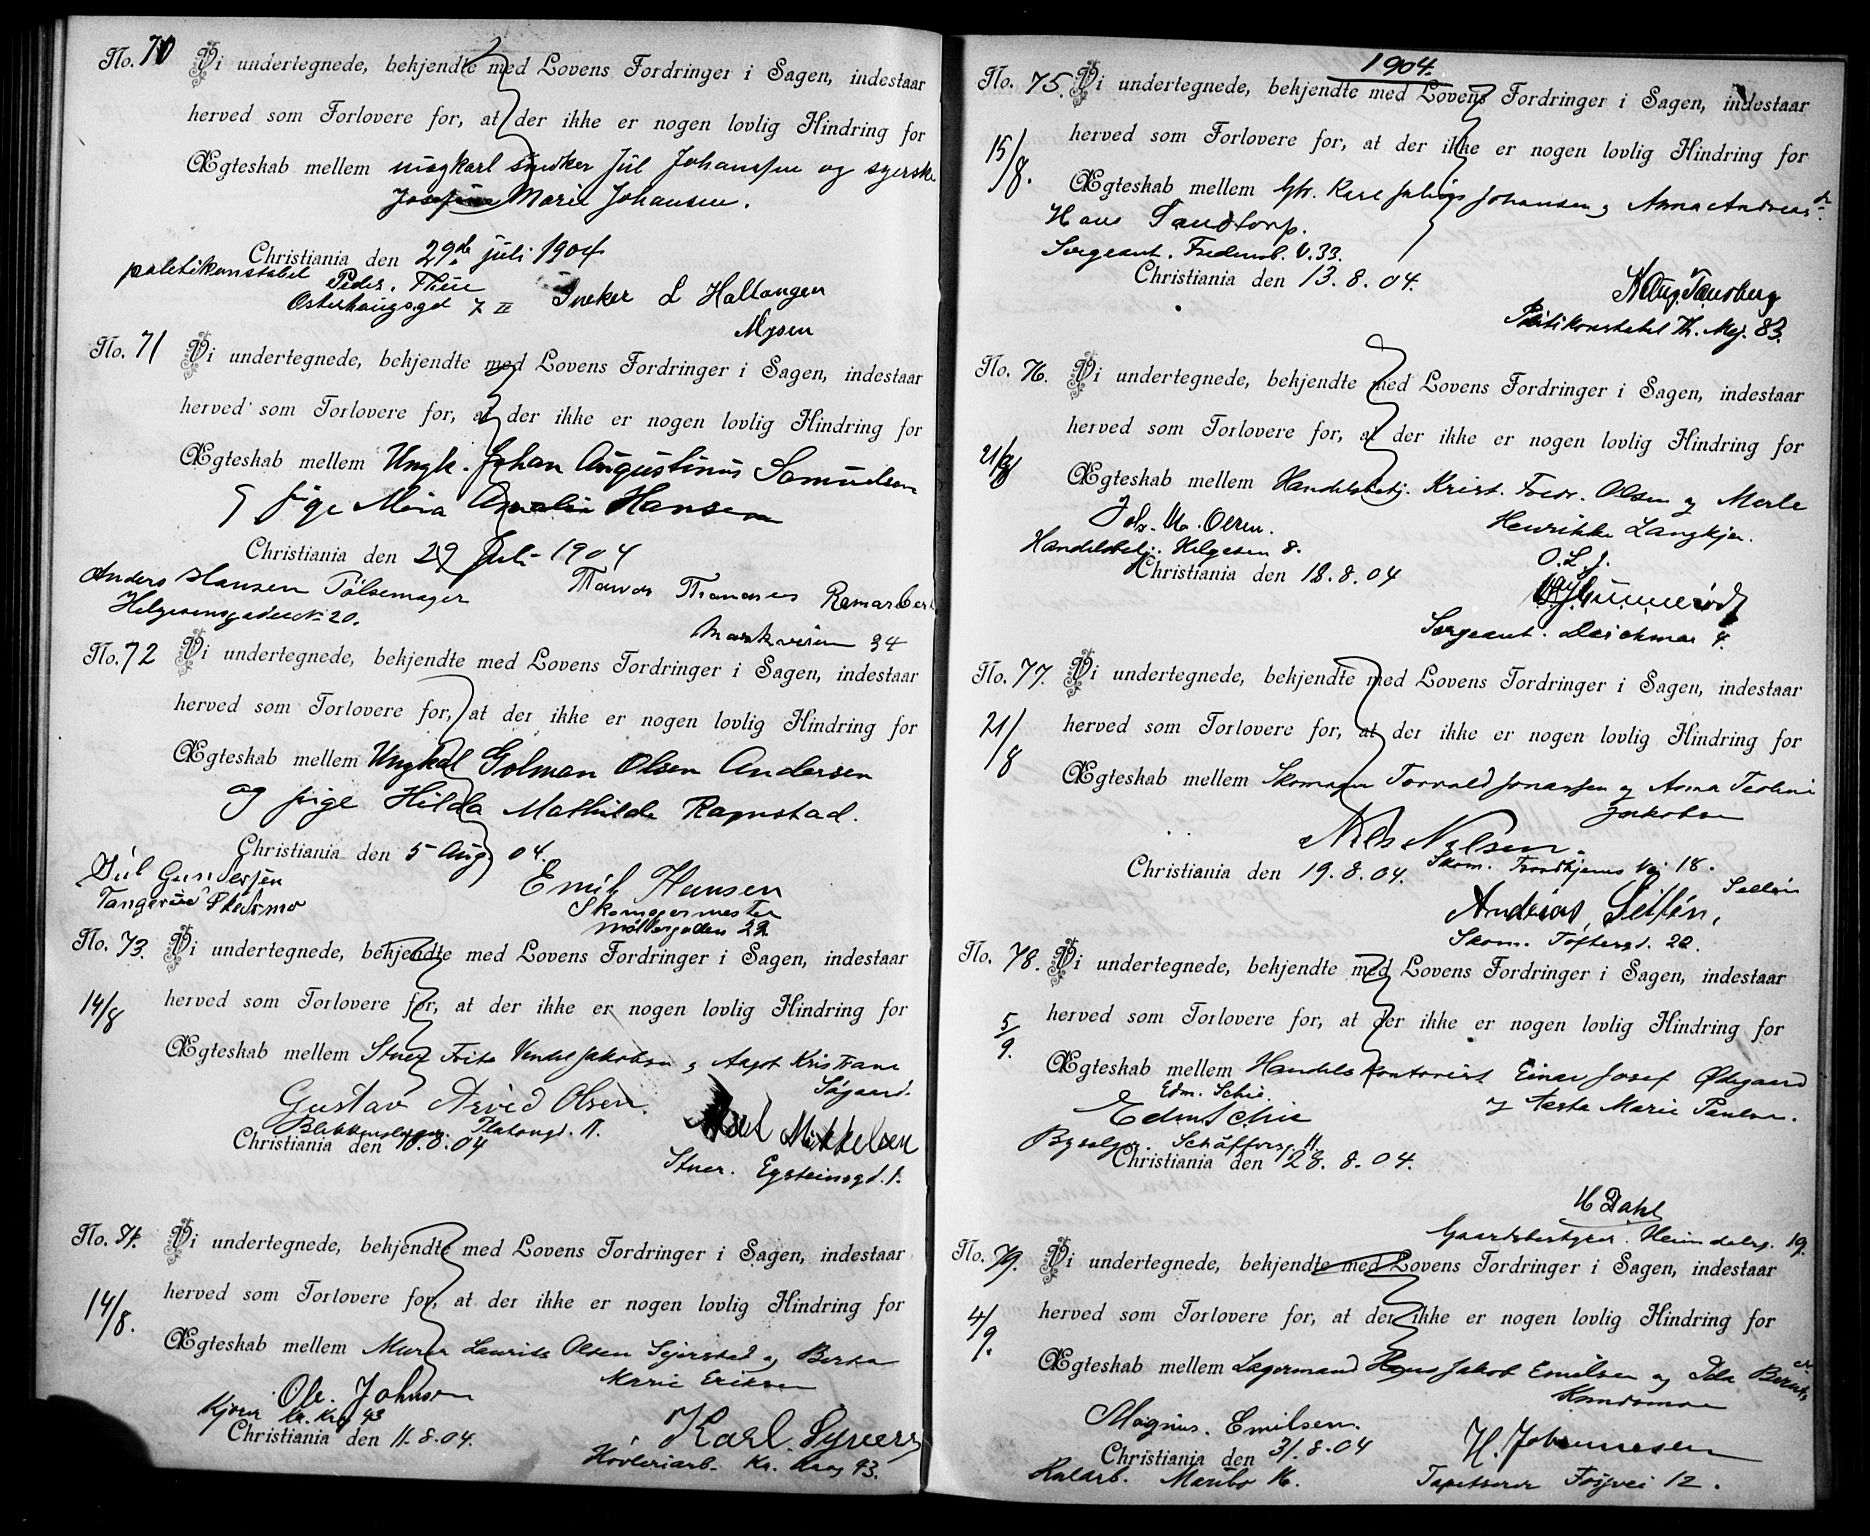 No. 70 Vi undertegnede, bekjendte med Lovens Fordringer i Sagen, indestaar
herved som Forlovere for, at der ikke er nogen lovlig Hindring for
Ægteskab mellem ungkarl snedker Jul Johanssen og syerske
Josefine Marie Johansen.
Christiania den 29de juli 1904
politikonstabel Peder. Thue
Osterhausgd 7 II
L Haltangen
Mysen
No. 71 Vi undertegnede, bekjendte med Lovens Fordringer i Sagen, indestaar
herved som Forlovere for, at der ikke er nogen lovlig Hindring for
Ægteskab mellem Ungk. Johan Augustinus Samuelsen
og pige Mina Amalie Hansen
Christiania den 29 Juli 1904
Anders Hansen Pölsemager
Helgesensgaden No 20.
Markveien 34
No. 72 Vi undertegnede, bekjendte med Lovens Fordringer i Sagen, indestaar
herved som Forlovere for, at der ikke er nogen lovlig Hindring for
Ægteskab mellem Ungkal Golman Olsen Andersen
og pige Hilda Mathilde Ramstad.
Christiania den 5 Aug 04.
Jul Gundersen
Emil Hansen
Skomagermester
Möllergaden 22
No. 73. Vi undertegnede, bekjendte med Lovens Fordringer i Sagen, indestaar
14/8 herved som Forlovere for, at der ikke er nogen lovlig Hindring for
Ægteskab mellem Stuer Frits Vendel Jakobsen og Aagot Kristiane
Søgaard.
Gustav Arvid Olsen.
Blikkenslager Platougd. 11.
Christiania den 10.8.04
Axel Mikkelsen
Stuer. Eysteinsgd. 1.
No. 74. Vi undertegnede, bekjendte med Lovens Fordringer i Sagen, indestaar
14/8. herved som Forlovere for, at der ikke er nogen lovlig Hindring for
Ægteskab mellem Murer Laurits Olsen Sejersted og Berta
Marie Eriksen
Ole. Johnsen
Kjører Kr. Krog 43
Christiania den 11.8.04.
Karl. Syvers
Høvleriarb. Kr. Krog 43.
1904.
No. 75. Vi undertegnede, bekjendte med Lovens Fordringer i Sagen, indestaar
15/8. herved som Forlovere for, at der ikke er nogen lovlig Hindring for
Ægteskab mellem Karl Julius Johansen og Anna Andreas
Hans Tandtorp.
Sergeant. Fredensb. V. 33.
Christiania den 13.8.04.
Aug. Tønsberg
Politikonstabel Th. Mej. 83.
No. 76. Vi undertegnede, bekjendte med Lovens Fordringer i Sagen, indestaar
21/8 herved som Forlovere for, at der ikke er nogen lovlig Hindring for
Ægteskab mellem Handelsbetj. Krist. Fredr. Olsen og Merle
Henrikke Langkjer.
Joh. M. Olsen.
Handelsbetj. Helgesen 8.
Christiania den 18.8.04
O. L. J.
Sergeant. Deichman 4.
No. 77. Vi undertegnede, bekjendte med Lovens Fordringer i Sagen, indestaar
21/8 herved som Forlovere for, at der ikke er nogen lovlig Hindring for
Ægteskab mellem Skomager Torvald Jonassen og Anna Teoline
Jakobsen
Nils Nilsen.
Skom. Trondhjems Vej 18.
Christiania den 19.8.04.
Sellén
Andreas Sellén,
Skom. Toftesgd. 20.
No. 78. Vi undertegnede, bekjendte med Lovens Fordringer i Sagen, indestaar
5/9. herved som Forlovere for, at der ikke er nogen lovlig Hindring for
Ægteskab mellem Handelskontorist Einar Josef Ødegaard
og Aasta Marie Paulsen.
Edm. Schie.
Edm Schie
Byselger. Schäffersg. 11.
Christiania den 28.8.04.
H Dahl
Gaardsbestyrer. Heimdalsg. 19.
No. 79. Vi undertegnede, bekjendte med Lovens Fordringer i Sagen, indestaar
4/9. herved som Forlovere for, at der ikke er nogen lovlig Hindring for
Ægteskab mellem Lagermand Hans Jakob Emilsen og Ida
Magnus. Emilsen.
Christiania den 31.8.04
Maribo 16.
H. Johannesen
Tapetserer Fossvei 12.